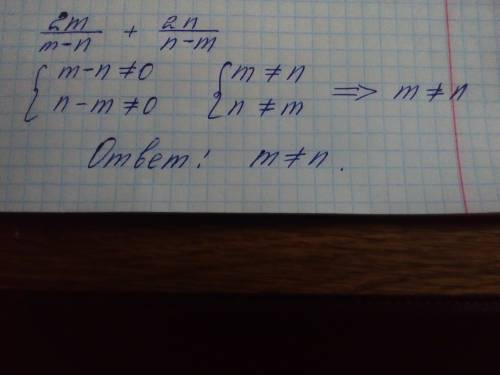 2m/(m-n) + 2n/(n-m)
{ m-n≠0 { m≠n
{ n-m≠0 { n≠m => m≠n
Ответ: m≠n.